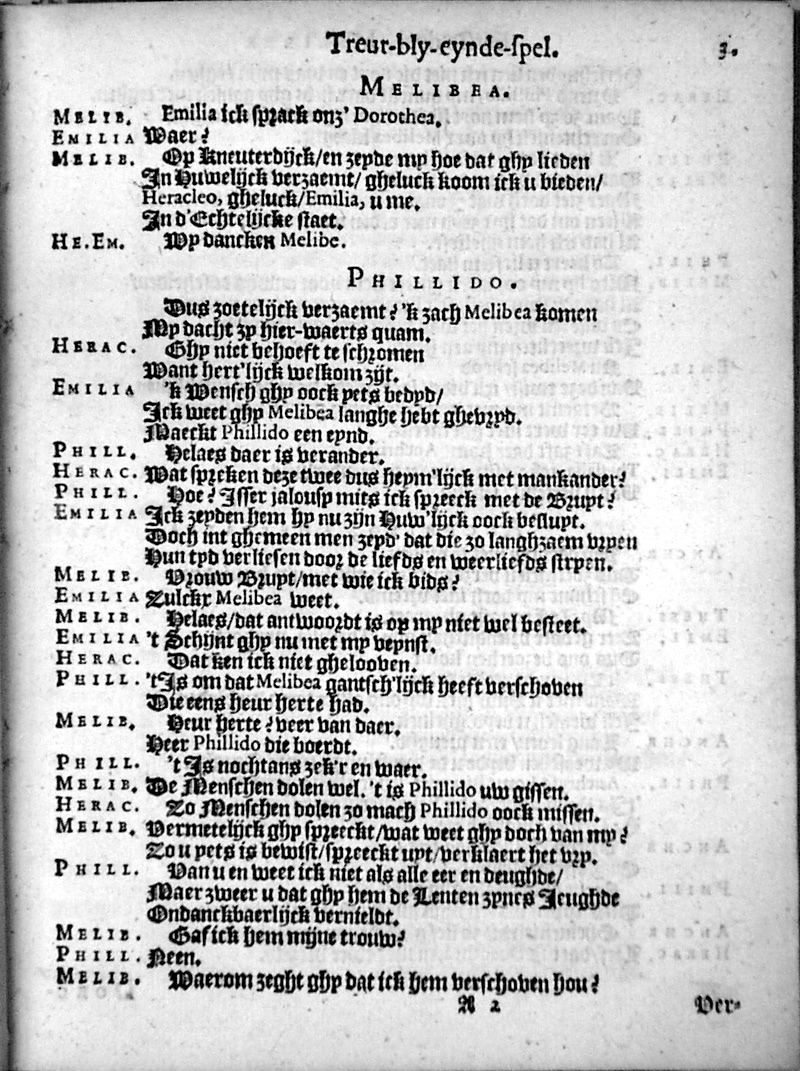 Treur-bly-eynde-spel. 3.
MELIBEA.
MELIB. Emilia ick sprack onz' Dorothea.
EMILIA Waer?
MELIB. Op Kneuterdijck/en zeyde my hoe dat ghy lieden
In Huwelijck verzaemt/ gheluck koom ick u bieden/
Heracleo, gheluck/Emilia, u me.
In d'Echtelijcke staet.
HE.EM. Wy dancken Melibe.
PHILLIDO.
Dus zoetelijck verzaemt? 'k zach Melibea komen
My dacht zy hier-waerts quam.
HERAC. Ghy niet behoeft te schromen
Want hert'lijck welkom zijt.
EMILIA 'k Wensch ghy oock yets bedyd/
Ick weet ghy Melibea langhe hebt ghevryd.
Maeckt Phillido een eynd.
PHILL. Helaes daer is verander.
HERAC. Wat spreken deze twee dus heym'lijck met mankander?
PHILL. Hoe? Isser jalousy mits ick spreeck met de Bruyt?
EMILIA Ick zeyden hem hy nu zijn Huw'lijck oock besluyt.
Doch int ghemeen men zeyd' dat die zo langhzaem vryen
Hun tyd verliesen door de liefds en weerliefds stryen.
MELIB. Vrouw Bruyt/met wie ick bids?
EMILIA Zulckr Melibea weet.
MELIB. Helaes/dat antwoordt is op my niet wel besteet.
EMILIA 't Schijnt ghy nu met my veynst.
HERAC. Dat ken ick niet ghelooven.
PHILL. 't Is om dat Melibea gantsch'lijck heeft verschoven
Die eens heur herte had.
MELIB. Heur herte? veer van daer.
Heer Phillido die boerdt.
PHILL. 't Is nochtans zek'r en waer.
MELIB. De Menschen dolen wel. 't is Phillido uw gissen.
HERAC. Zo Menschen dolen zo mach Phillido oock missen.
MELIB. Vermetelijck ghy spreeckt/wat weet ghy doch van my?
Zo u yets is bewist/spreeckt uyt/verklaert het vry.
PHILL. Van u en weet ick niet als alle eer en deughde/
Maer zweer u dat ghy hem de Lenten zynes Jeughde
Ondanckbaerlijck vernieldt.
MELIB. Gaf ick hem mijne trouw?
PHILL. Neen.
MELIB. Waerom zeght ghy dat ick hem verschoven hou?
A 2 Ver-